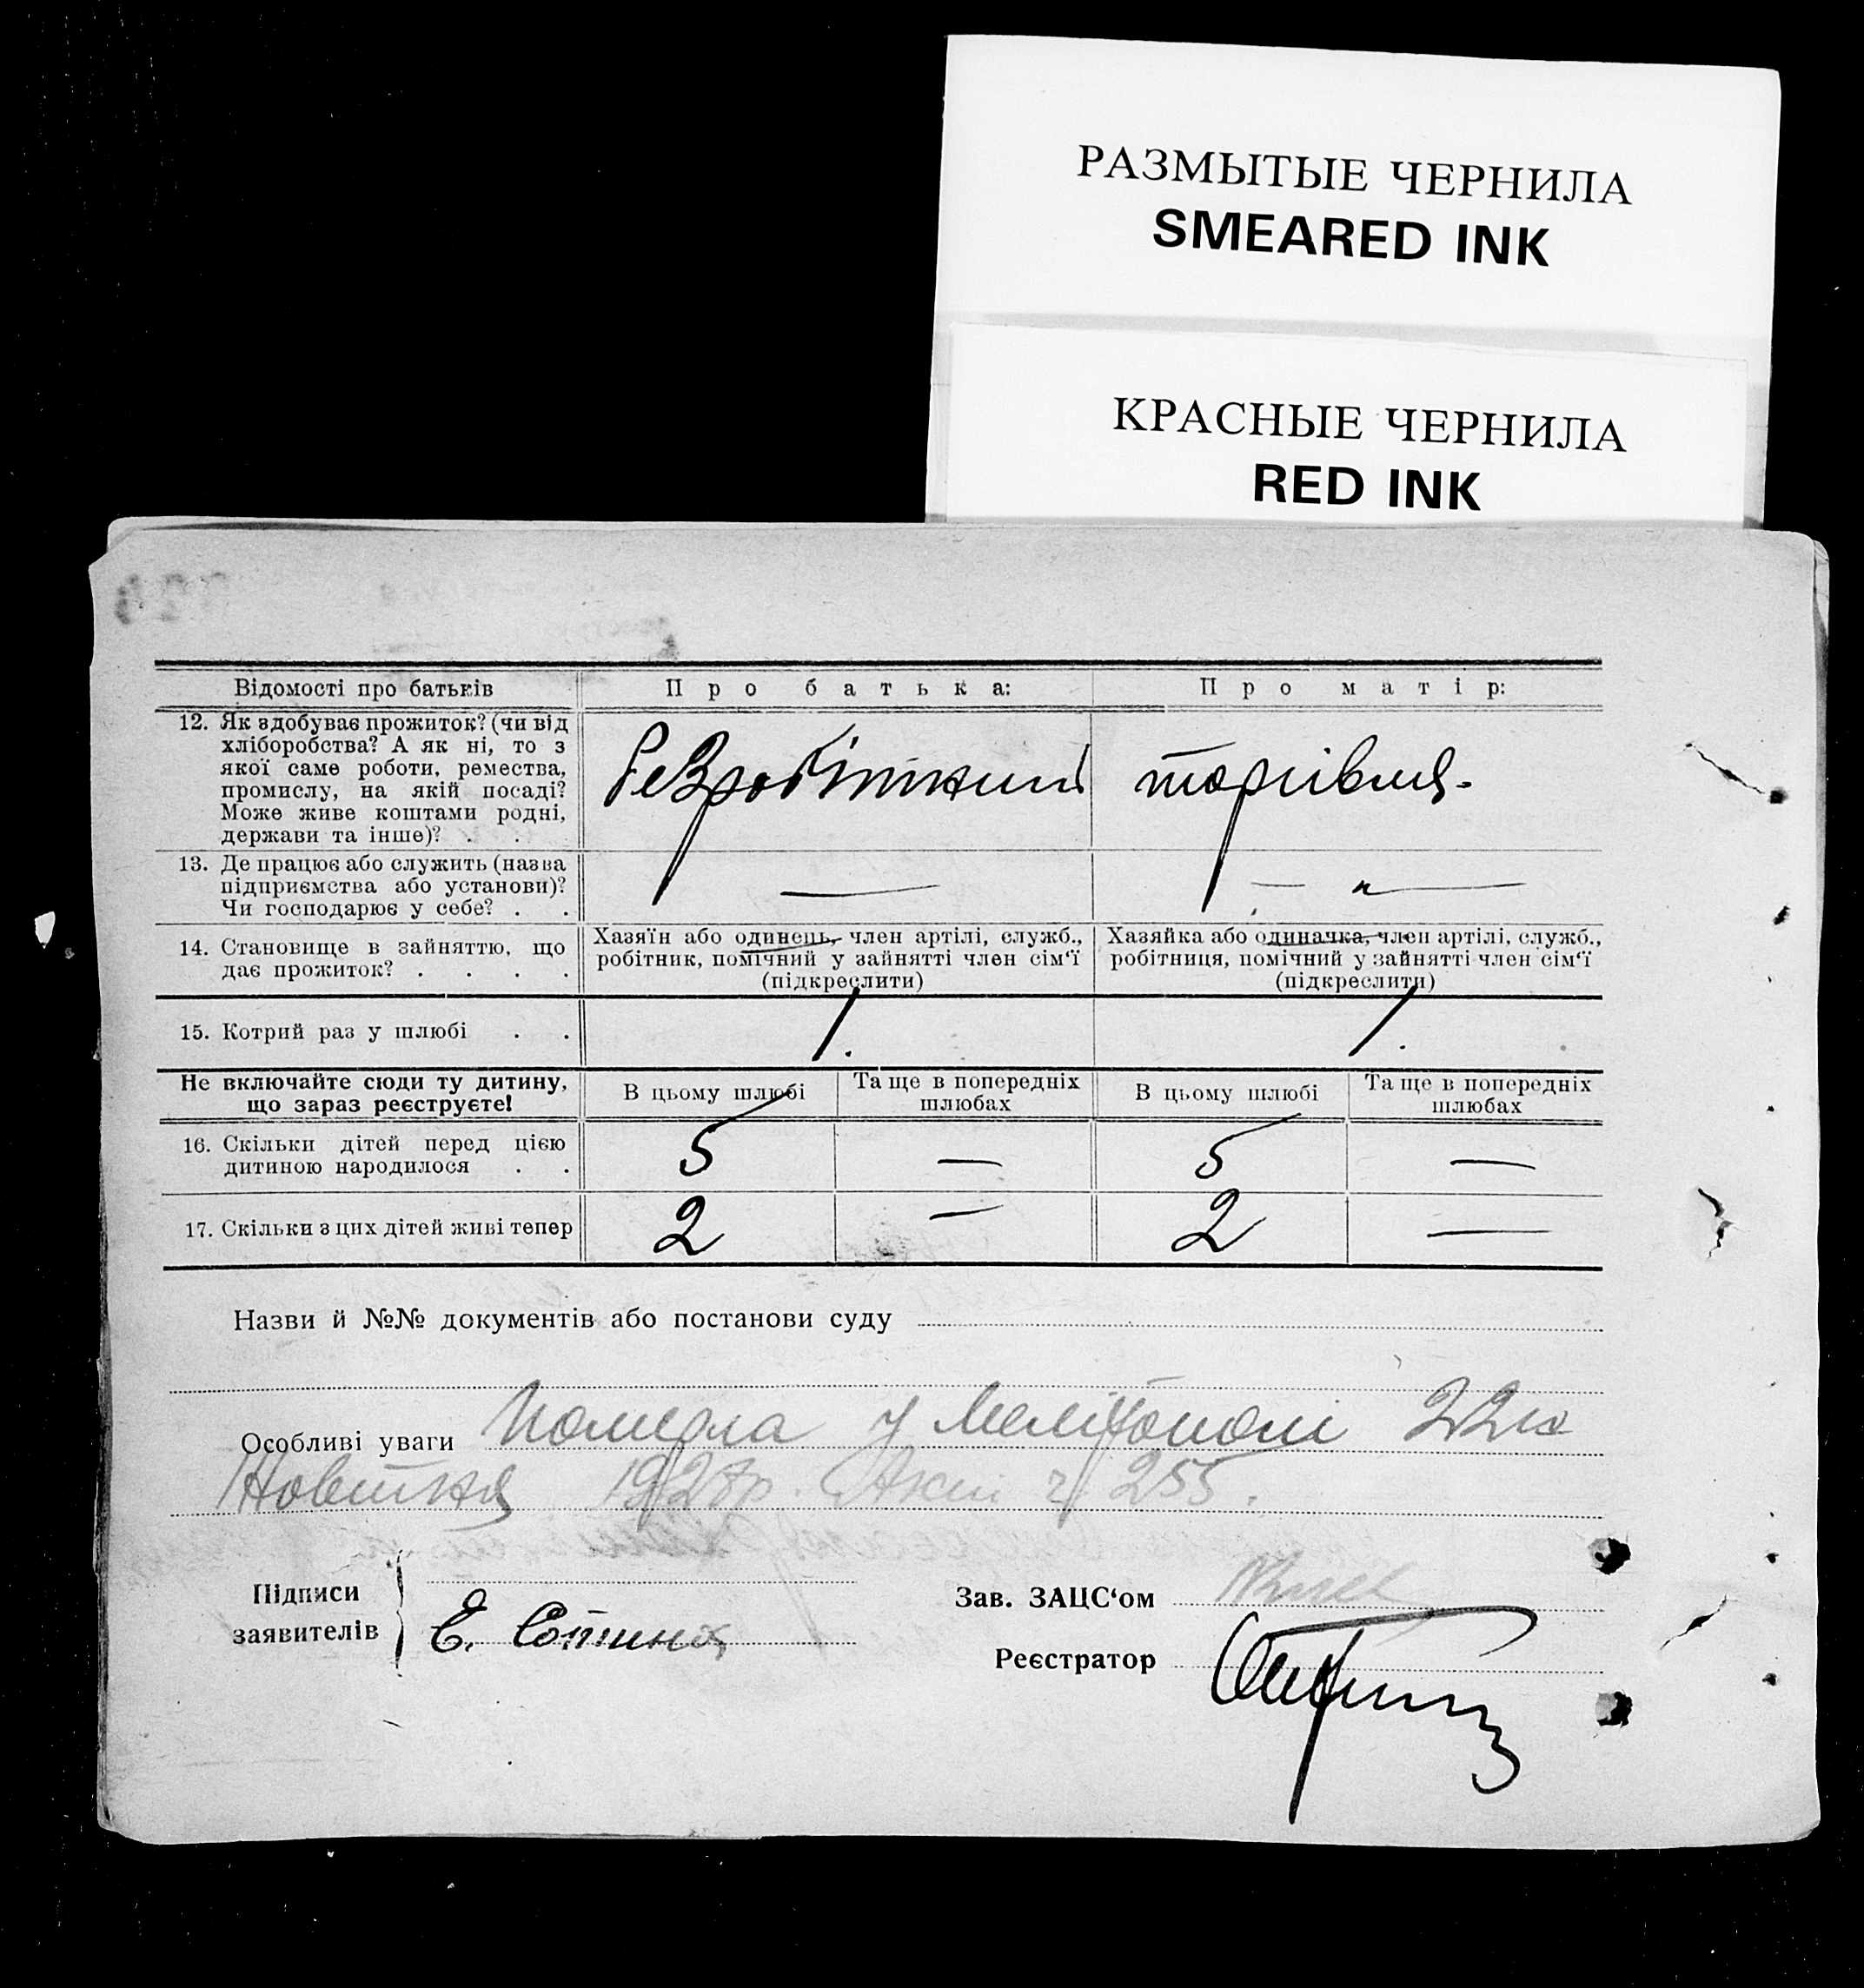 РАЗМЫТЫЕ ЧЕРНИЛА
SMEARED INK
КРАСНЫЕ ЧЕРНИЛА
RED INK
Відомості про батьків
Про батька:
Про матір:
12. Як здобуває прожиток? (чи від
хліборобства? А як ні, то з
якої саме роботи, ремества,
промислу, на якій посаді?
Може живе коштами родні,
держави та інше)? . .
безробітний
торгівля.
13. Де працює або служить (назва
підприємства або установи)?
Чи господарює у себе? . .
—
— " —
14. Становище в зайняттю, що
дає прожиток? . . . .
Хазяїн або одинець, член артілі, служб.,
робітник, помічний у зайнятті член сім‘ї
(підкреслити)
Хазяйка або одиначка, член артілі, служб.,
робітниця, помічний у зайнятті член сім‘ї
(підкреслити)
15. Котрий раз у шлюбі . .
1.
1.
Не включайте сюди ту дитину,
що зараз реєструєте!
В цьому шлюбі
Та ще в попередніх
шлюбах
В цьому шлюбі
Та ще в попередніх
шлюбах
16. Скільки дітей перед цією
дитиною народилося . .
5
—
5
—
17. Скільки з цих дітей живі тепер
2
—
2
—
Назви й №№ документів або постанови суду
Особливі уваги Померла у Мелітополі 22го
Жовтня 1928р. Акт ч 255.
Підписи
заявителів
Е. Сотина
Зав. ЗАЦС‘ом
Реєстратор